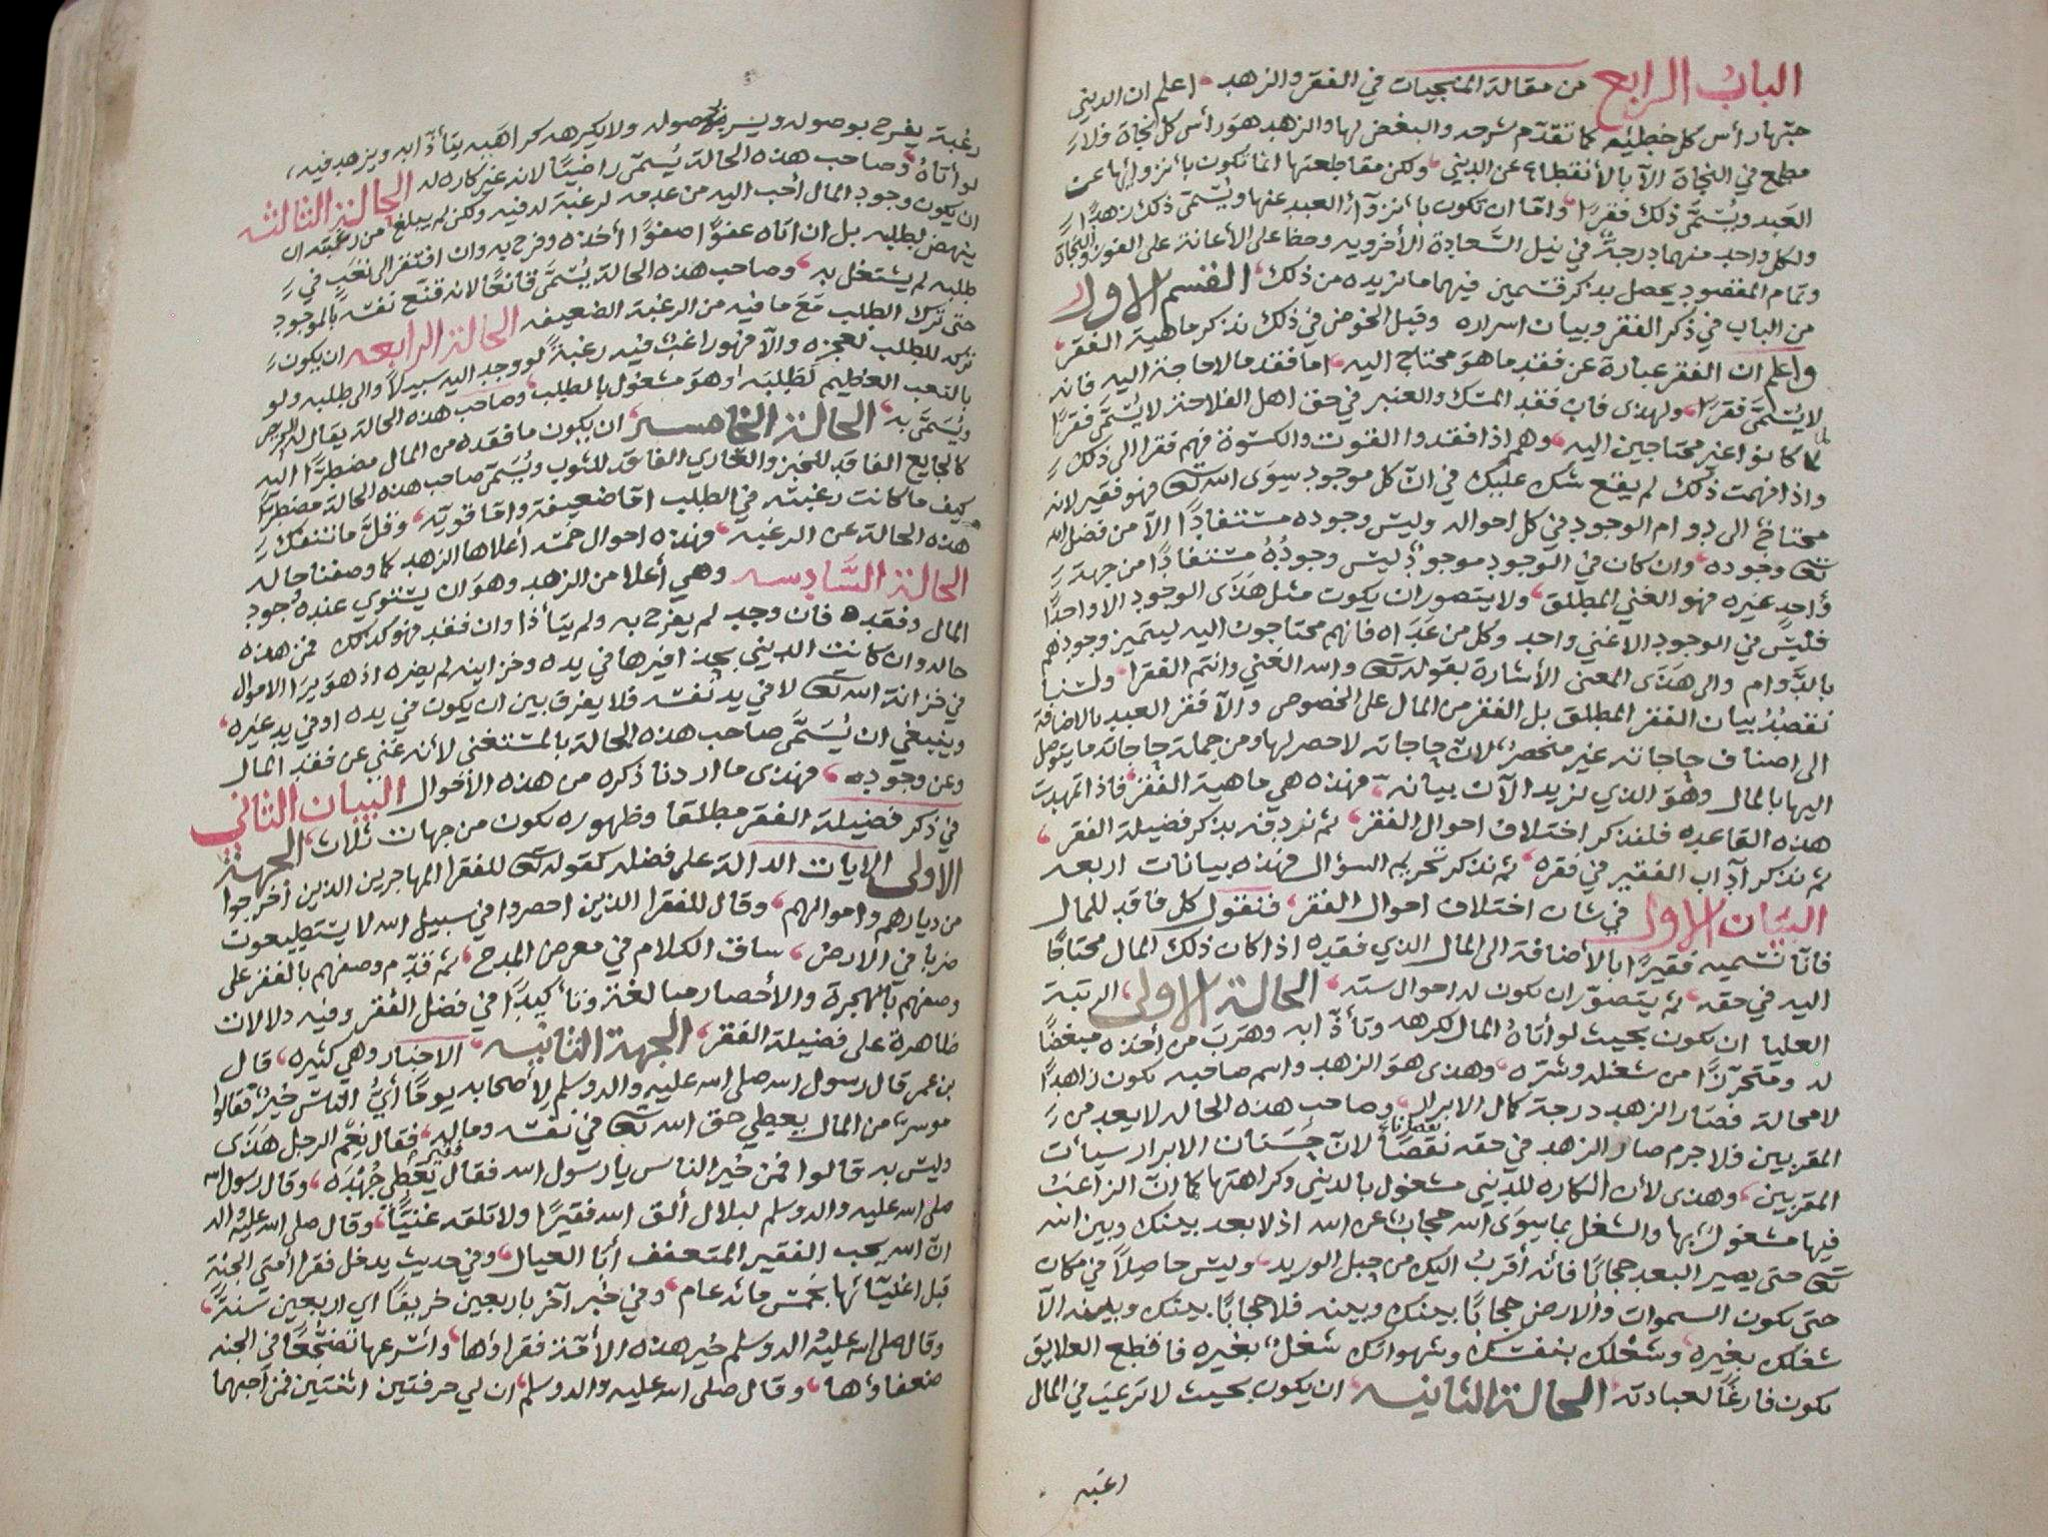 الباب الرابع من مقالة المنجيات في الفقر والزهد اعلم ان الدينى
حبّها رأس كل خطيئه كما تقدّم شرحه والبغض لها والزهد هو رأس كل نجاة فلا
مطمع في النجاة الّا بالأنقطاع عن الدينى ولكن مقاطعتها انما تكون بانزوائها عن
العَبد ويُسَمَّى ذلك فقرًا وامّا ان تكون بانزوآء العبد عنها ويُسَمّى ذلك زهدًا
ولكل واحد منهما درجة في نيل السَّعادة الأخرويه وحظ على الأعانة على الفوز والنجاة
وتمام المقصود يحصل بذكر قسمين فيهما ما نريده من ذلك القسم الاول
من الباب في ذكر الفقر وبيان اسراره وقبل الخوض في ذلك نذكر ماهية الفقر
واعلم ان الفقر عبارة عن فقد ما هو محتاج اليه اما فقد ما لا حاجة اليه فانه
لا يُسَمَّى فقرًا ولهذى فان فقد المسك والعنبر في حق اهل الفلاحة لا يُسَمَّى فقرًا
لما كانوا غير محتاجين اليه وهم اذا فقدوا القوت والكسوة فهم فقرا الى ذلك
واذا فهمت ذلك لم يقع شك عليك في انّ كل موجود سِوَى الله تعا فهو فقير لانه
محتاج الى دوام الوجود في كل احواله وليس وجوده مستفادًا الّا من فضل الله
تعا وجوده وان كان في الوجود موجود ليس وجودُهُ مستفادًا من جهة
واحدٍ غيره فهو الغني المطلق ولا يتصور ان يكون مثل هَذَى الوجود الا واحدًا
فليس في الوجود الا غني واحد وكل من عَدَاه فانهم محتاجون اليه ليستمر وجودهم
بالدَّوام والى هَذَى المعنى الأشارة بقوله تعا والله الغني وانتم الفقرا ولسنا
نقصدُ بيان الفقر المطلق بل الفقر من المال على الخصوص والّا فقر العبد بالاضافة
الى اصناف حاجاته غير منحصر لان حاجاته لا حصر لها ومن جملة حاجاته ما يتوصل
اليها بالمال وهو الذي نريد الآن بيانه فهذه هي ماهية الفقر فاذا تمهدت
هذه القاعده فلنذكر اختلاف احوال الفقر ثم نردفه بذكر فضيلة الفقر
ثم نذكر آداب الفقير في فقره ثم نذكر تحريم السؤال فهذه بيانات اربعه
البيان الاول في شان اختلاف احوال الفقر فنقول كل فاقد للمال
فانّا نسميه فقيرًا بالأضافة الى المال الذي فقده اذا كان ذلك المال محتاجًا
اليه في حقه ثم يتصوّر ان تكون له احوال سته الحالة الاولى الرتبة
العليا ان تكون بحيث لو أتاهُ المال لكرهه وتأذّا به وهرَبَ من أخذه مبغضًا
له ومتحرّزًا من شغله وشرّه وهذى هو الزهد واسم صاحبه يكون زاهدًا
لا محالة فصار الزهد درجة كمال الابرار وصاحب هذه الحاله لا يعد من
المقربين فلا جرم صار الزهد في حقه نقصًا نقصانا لانّ حَسَنات الابرار سيأت
المقربين وهذى لأن الكاره للدينى مشغول بالدينى وكراهتها كما انّ الراغب
فيها مشغول بها والشغل بما سِوَى الله حجاب عن الله اذ لا بعد بينك وبين الله
تعا حتى يصير البعد حجابًا فانّه أقربُ اليك من حبل الوريد وليس حاصلًا في مكان
حتى يكون السموات والارض حجابًا بينك وبينه فلا حجابًا بينك وبينه الّا
شغلك بغيره وشغلك بنفسك وشهواتك شغل بغيره فاقطع العلايق
تكون فارغًا لعبادته الحالة الثانيه ان يكون بحيث لا ترغب في المال
رغبه
رغبة يفرح بوصوله ويسر بحصوله ولا يكرهه كراهَيه يتأذّا به ويزهد فيه
لو أتاهُ وصاحب هذه الحالة يُسمّى راضيًا لانه غير كاره له الحالة الثالثه
ان يكون وجود المال أحب اليه من عدمه لرغبة له فيه ولكن لم يبلغ من رغبته ان
ينهض لطلبه بل ان اتاه عفوًا صفوًا أخذه وفرح به وان افتقر الى تعَب في
طلبه لم يشتغل به وصاحب هذه الحالة يُسَمَّى قانعًا لانه قنّع نفسه بالموجود
حتى ترك الطلب مَعَ ما فيه من الرغبة الضعيفه الحالة الرابعه ان يكون
تركه للطلب لعجزه والّا فهو راغب فيه رغبةً لو وجد اليه سبيلًا والى طلبه ولو
بالتعب العظيم لطلبَه او هو مشغول بالطلب وصاحب هذه الحالة يقال له الحريص
ويُسَمَّى به الحالة الخامسه ان يكون ما فقده من المال مضطرًّا اليه
كالجايع الفاقد للخبز والعاري الفاقد للثوب ويُسَمَّى صاحب هذه الحالة مضطرًّا
كيف ما كانت رغبته في الطلب امّا ضعيفة وامّا قويّه وقلّ ما تنفك
هذه الحالة عن الرغبه فهذه احوال خمسه أعلاها الزهد كما وصفنا حاله
الحالة السَّادسه وهي أعلا من الزهد وهو ان يستوي عنده وُجود
المال وفقده فان وجد لم يفرح به ولم يتأذا وان فقد فهو كذلك فمن هذه
حاله وان كانت الدينى بحذافيرها في يده وخزاينه لم يضره اذ هو يرَا الاموال
في خزانة الله تعا لا في يد نفسه فلا يفرق بين ان يكون في يده او في يد غيره
وينبغي ان يُسَمَّى صاحب هذه الحالة بالمستغنى لأنه غني عن فقد المال
وعن وجوده فهذى ما اردنا ذكره من هذه الأحوال البيان الثاني
في ذكر فضيلة الفقر مطلقا وظهوره يكون من جهات ثلاث الجهة
الاولى الايات الدالة على فضله كقوله تعا للفقرا المهاجرين الذين أخرجوا
من ديارهم واموالهم وقال للفقرا الذين احصروا في سبيل الله لا يستطيعون
ضربا في الارض ساق الكلام في معرض المدح ثم قدّم وصفهم بالفقر على
وصفهم بالهجرة والأحصار مبالغة وتأكيدًا في فضل الفقر وفيه دلالات
ظاهرة على فضيلة الفقر الجهة الثانيه الاخبار وهي كثيره قال
بن عمر قال رسول الله صلى الله عليه واله وسلم لأصحابه يومًا أيُّ الناس خير فقالوا
موسر من المال يعطي حق الله تعا في نفسه وماله فقال نعم الرجل هَذَى
وليس به قالوا فمن خير الناس يا رسول الله فقال فقير يعطي جُهدَه وقال رسول الله
صلى الله عليه واله وسلم لبلال ألق الله فقيرًا ولا تلقه غنيًّا وقال صلى الله عليه واله
انّ الله يحب الفقير المتعفف أبَا العيال وفي حديث يدخل فقرا أمتي الجنة
قبل اغنيآئها بخمس مائه عام وفي خبر آخر باربعين خريفًا اي اربعين سَنة
وقال صلى الله عليه واله وسلم خير هذه الأمّة فقراؤها وأسرعها تضجّعًا في الجنه
ضعفاؤها وقال صلى الله عليه واله وسلم ان لي حرفتين اثنتين فمن أحبهما